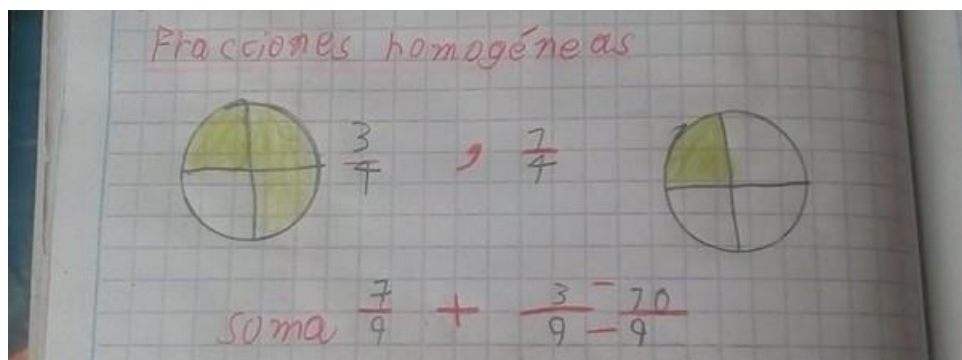 Fracciones homogéneas
3/4 , 1/4
soma 7/9 + 3/9 = 10/9